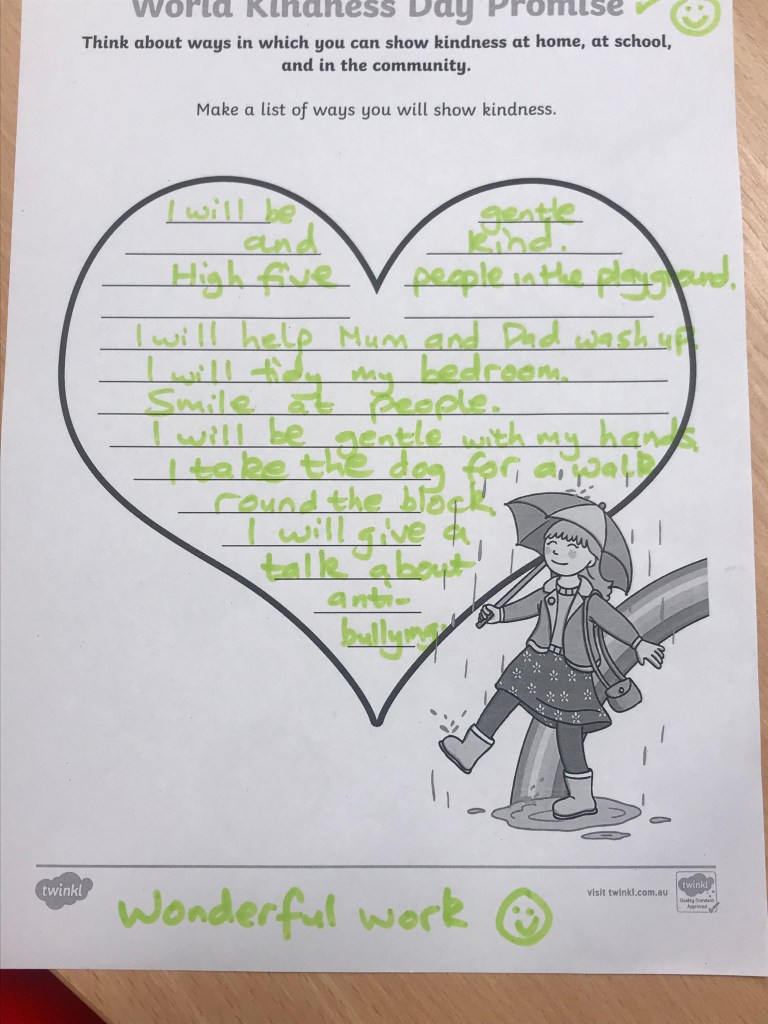 World Kindness Day Promise
Think about ways in which you can show kindness at home, at school,
and in the community.
Make a list of ways you will show kindness.
I will be gentle
and kind.
High five people in the playground.
I will help Mum and Dad wash up.
I will tidy my bedroom.
Smile at people.
I will be gentle with my hands.
I take the dog for a walk
round the block.
I will give a
talk about
anti-
bullying.
twinkl
visit twinkl.com.au
twinkl
Quality Standard
Approved
Wonderful work